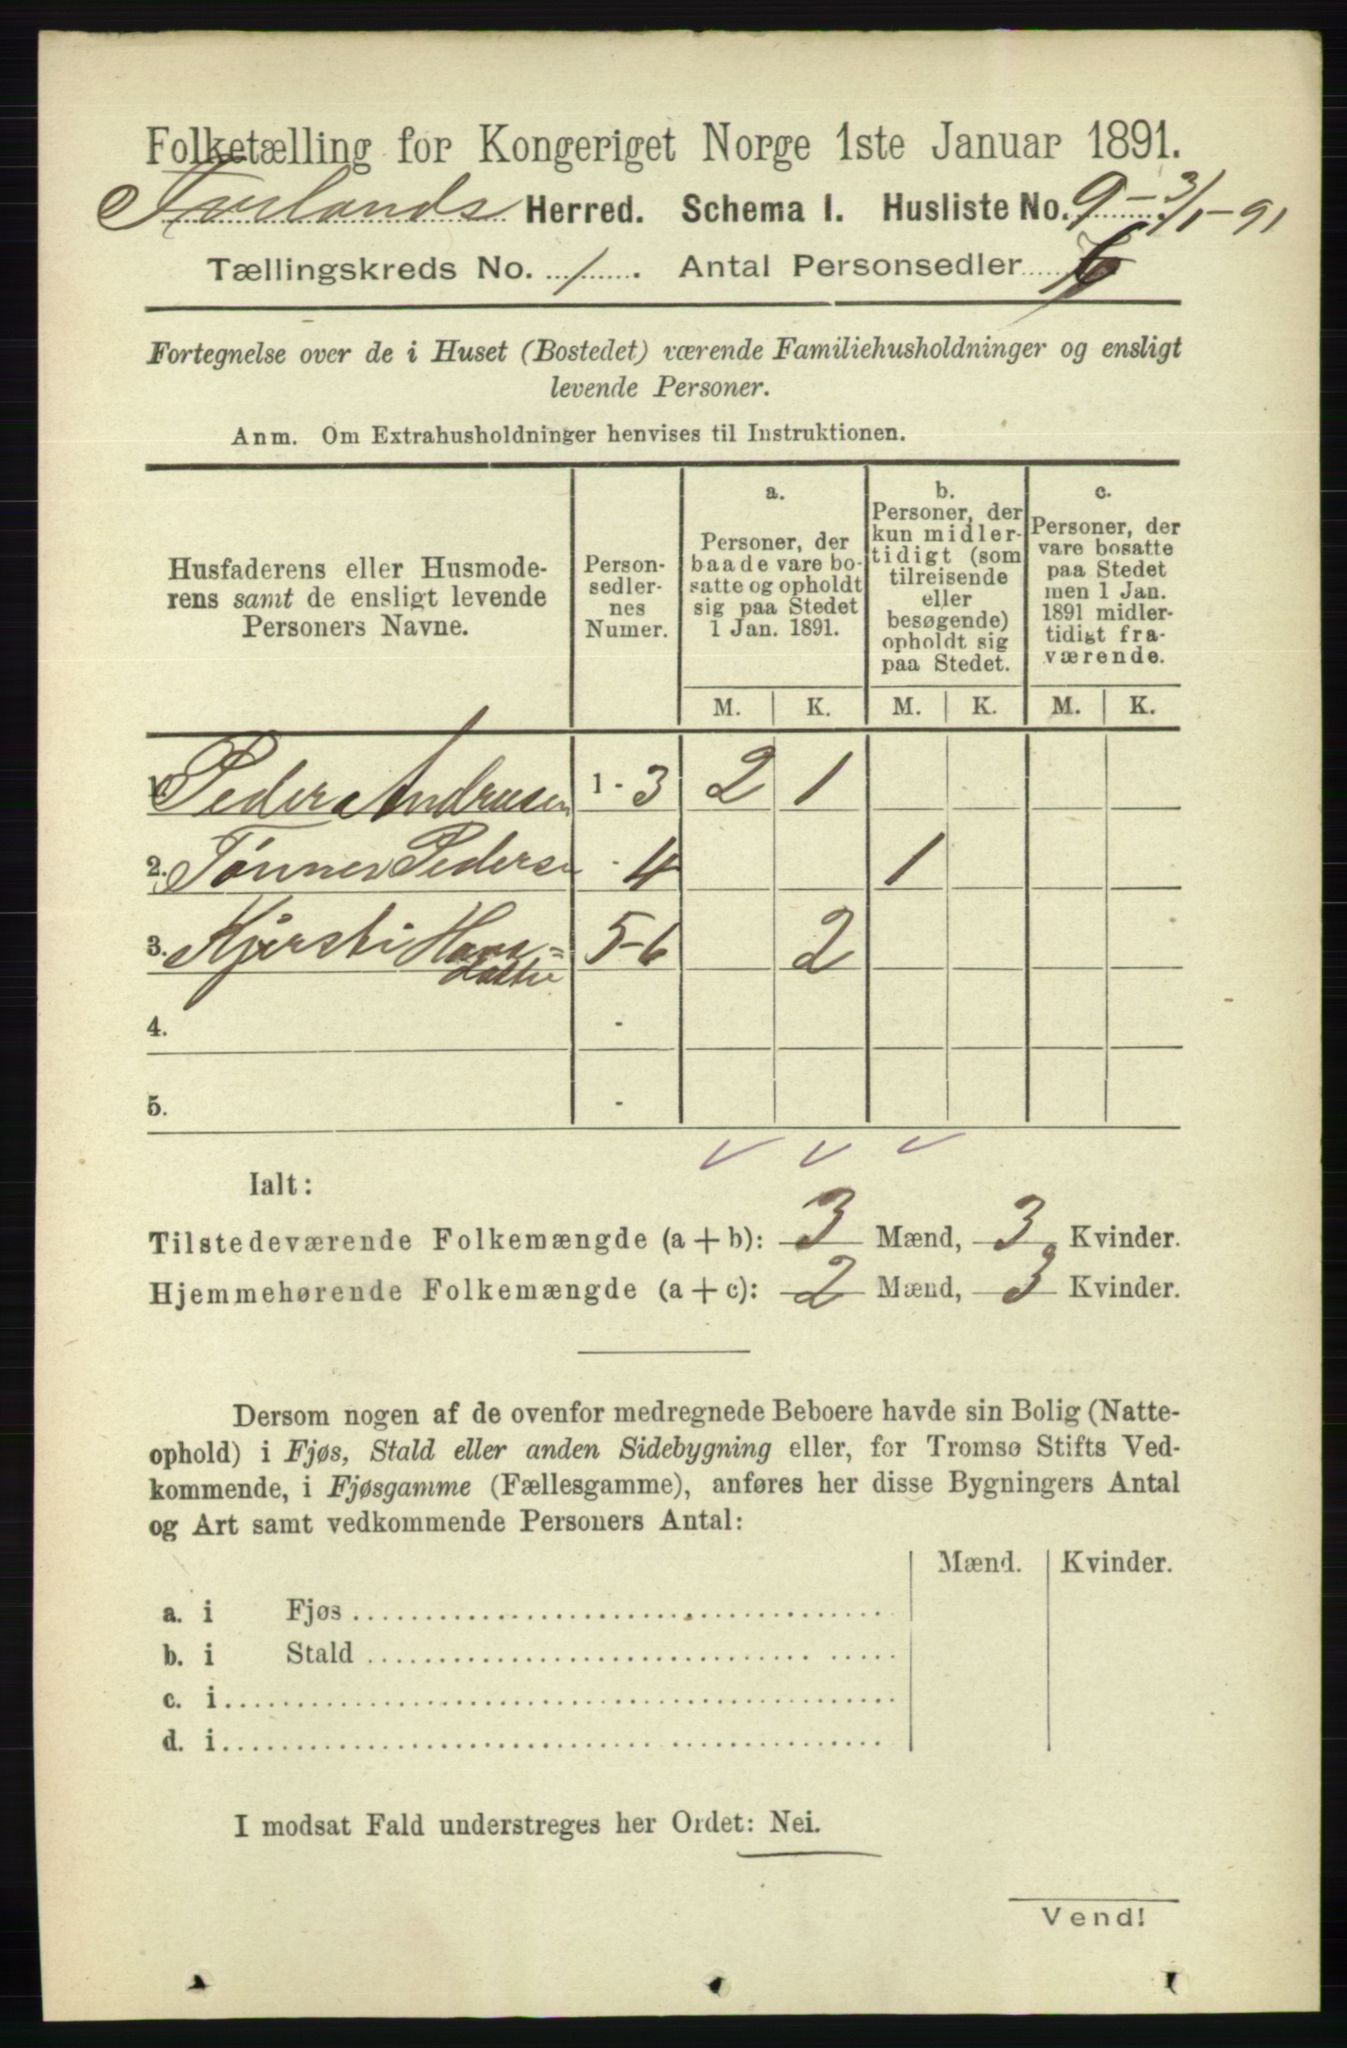 Folketælling for Kongeriget Norge 1ste Januar 1891.
Herred. Schema I. Husliste No. 9 - 3/1 - 91
Tællingskreds No. 1. Antal Personsedler 6
Fortegnelse over de i Huset (Bostedet) værende Familiehusholdninger og ensligt
levende Personer.
Anm. Om Extrahusholdninger henvises til Instruktionen.
Husfaderens eller Husmode-
rens samt de ensligt levende
Personers Navne.
Person-
sedler-
nes
Numer.
a.
Personer, der
baade vare bo-
satte og opholdt
sig paa Stedet
1 Jan. 1891.
b.
Personer, der
kun midler-
tidigt (som
tilreisende
eller
besøgende)
opholdt sig
paa Stedet.
c.
Personer, der
vare bosatte
paa Stedet
men 1 Jan.
1891 midler-
tidigt fra-
værende.
M. K. M. K. M. K.
1. Peder Andresen 1 - 3 2 1
2. Tønnes Peders - 4 1
3. Kjersti Hans= 5-6 2
datter
4. -
5. -
Ialt:
Tilstedeværende Folkemængde (a + b): 3 Mænd, 3 Kvinder.
Hjemmehørende Folkemængde (a + c): 2 Mænd, 3 Kvinder.
Dersom nogen af de ovenfor medregnede Beboere havde sin Bolig (Natte-
ophold) i Fjøs, Stald eller anden Sidebygning eller, for Tromsø Stifts Ved-
kommende, i Fjøsgamme (Fællesgamme), anføres her disse Bygningers Antal
og Art samt vedkommende Personers Antal:
Mænd. Kvinder.
a. i Fjøs
b. i Stald
c. i
d. i
I modsat Fald understreges her Ordet: Nei.
Vend!